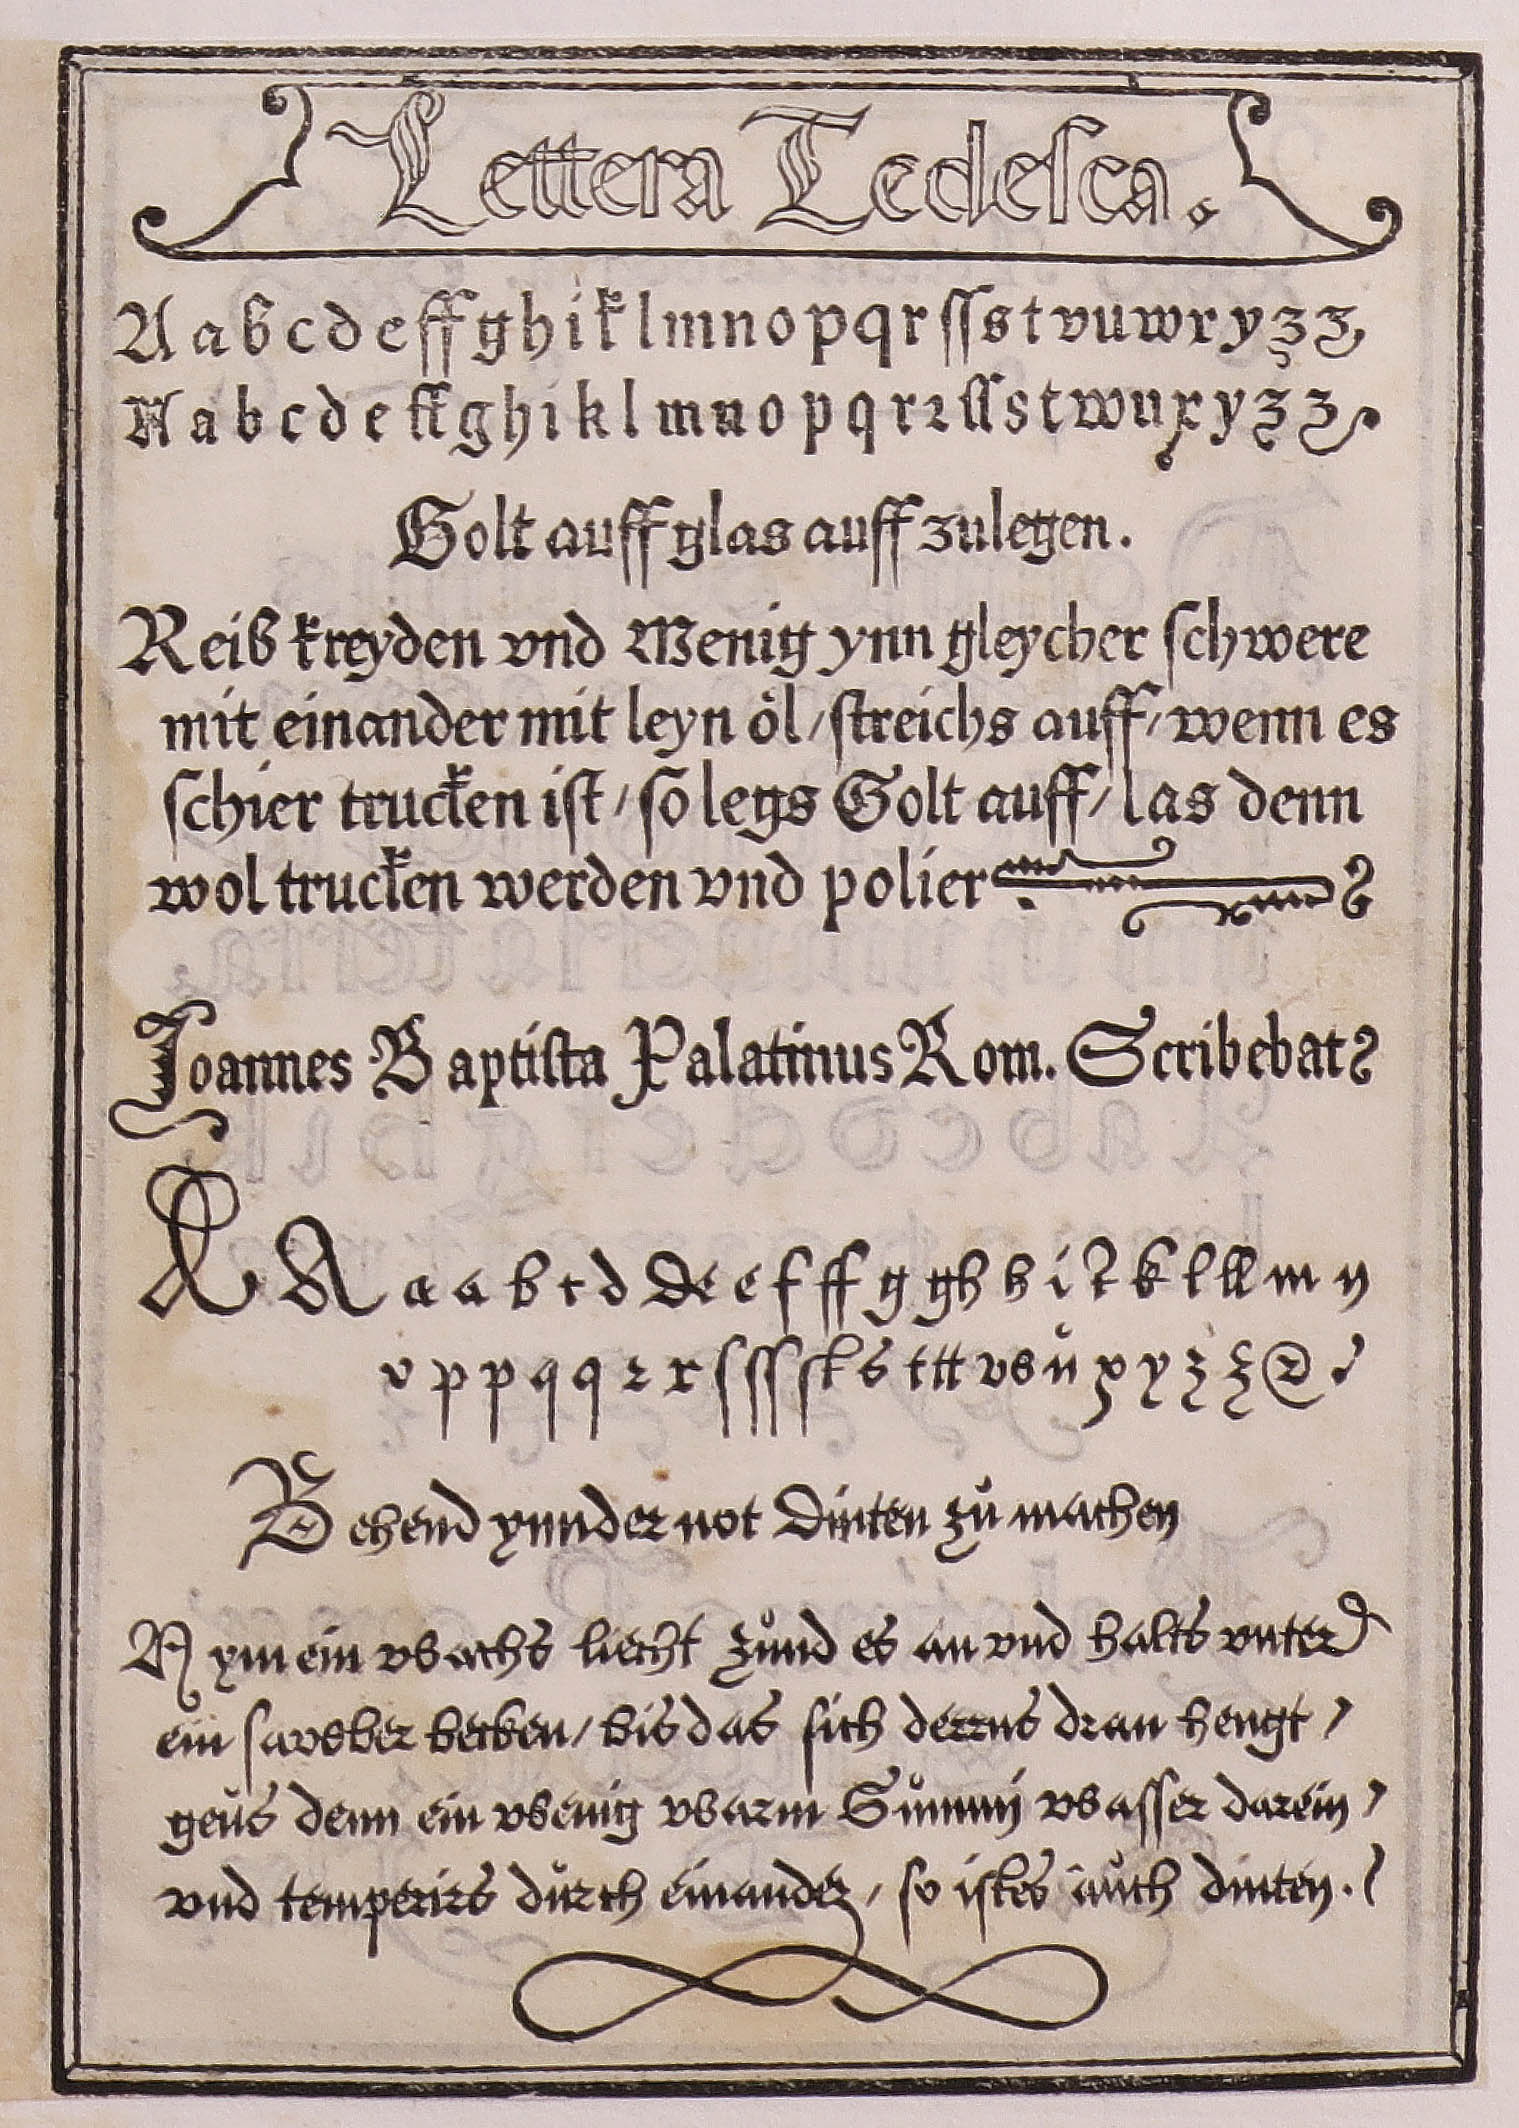 Lettera Tedesca.
A a b c d e f f g h i k l m n o p q r ſ ſ s t v u w x y z z
A a b c d e f f g h i k l m n o p q r ꝛ ſ ſ s t w u x y z z
Golt auff glas auff zulegen.
Reiß kreyden vnd Menig ynn gleycher ſchwere
mit einander mit leyn öl / ſtreichs auff / wenn es
ſchier trucken iſt / ſo legs Golt auff / las denn
wol trucken werden vnd polier
Joannes Baptiſta Palatinus Rom. Scribebat
A A a a b c d de e f ff g gh h i k k l ll m n
o p p q q ꝛ r ſ ſſ ſt s t tt w ů x y z z
Behend ynn der not Dinten zů machen
Nym ein wachs liecht zůnd es an vnd halts vnter
ein sawber becken / bis das sich derrus dran hengt /
geůs denn ein wenig warm Gůmmj wasser darein /
vnd temperirs důrch einander / so istes aůch dinten.